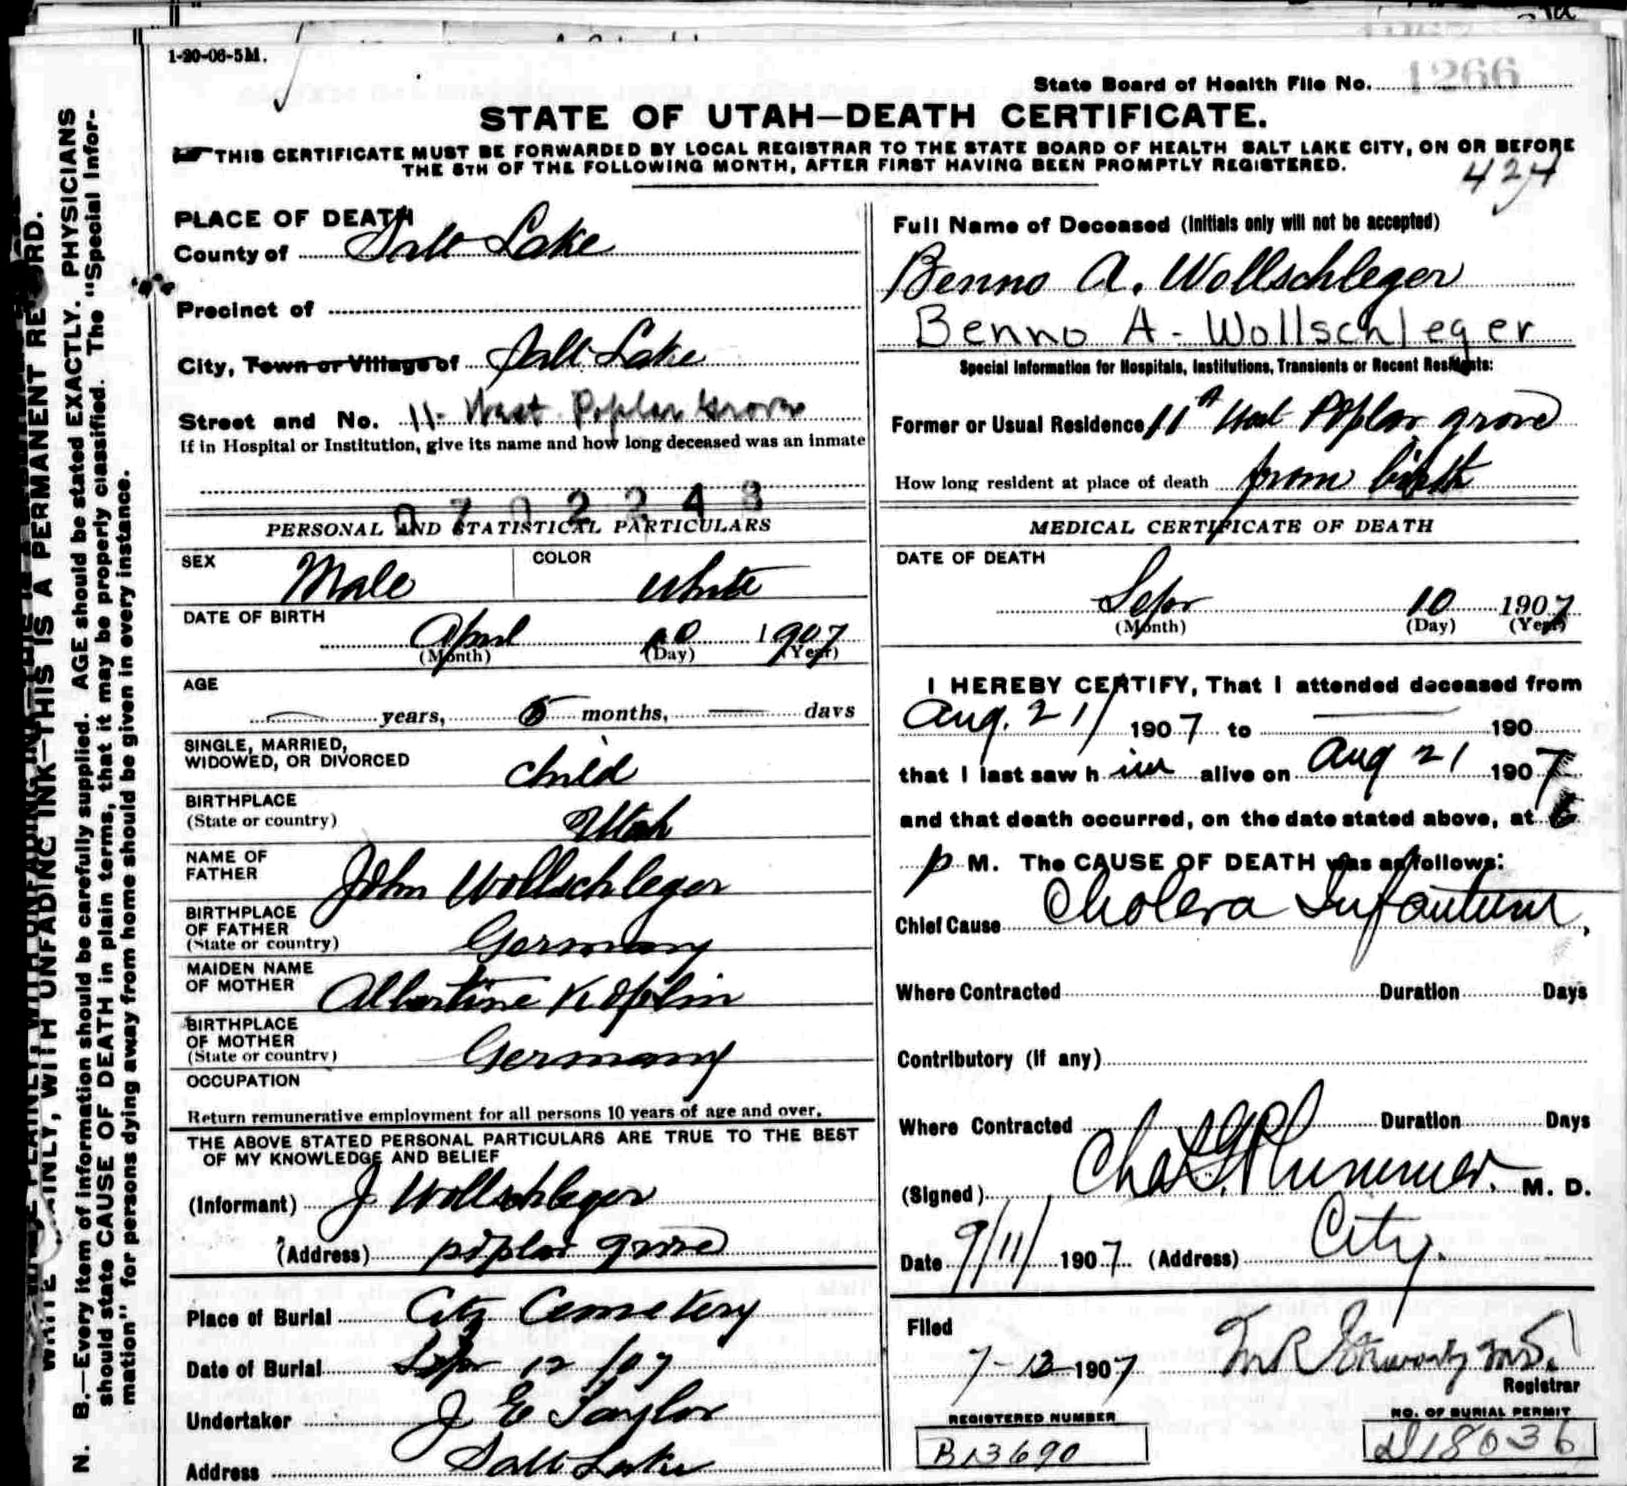 1-20-06-5M.
State Board of Health File No. 1266
STATE OF UTAH—DEATH CERTIFICATE.
THIS CERTIFICATE MUST BE FORWARDED BY LOCAL REGISTRAR TO THE STATE BOARD OF HEALTH SALT LAKE CITY, ON OR BEFORE
THE 5TH OF THE FOLLOWING MONTH, AFTER FIRST HAVING BEEN PROMPTLY REGISTERED.
424
PLACE OF DEATH
County of Salt Lake
Precinct of
City, Town or Village of Salt Lake
Street and No. 11 West Poplar Grove
If in Hospital or Institution, give its name and how long deceased was an inmate
0702243
PERSONAL AND STATISTICAL PARTICULARS
SEX Male COLOR White
DATE OF BIRTH
April 10 1907
(Month) (Day) (Year)
AGE
years, 5 months, — days
SINGLE, MARRIED,
WIDOWED, OR DIVORCED Child
BIRTHPLACE
(State or country) Utah
NAME OF
FATHER John Wollschleger
BIRTHPLACE
OF FATHER
(State or country) Germany
MAIDEN NAME
OF MOTHER Albertine Koplin
BIRTHPLACE
OF MOTHER
(State or country) Germany
OCCUPATION
Return remunerative employment for all persons 10 years of age and over.
THE ABOVE STATED PERSONAL PARTICULARS ARE TRUE TO THE BEST
OF MY KNOWLEDGE AND BELIEF
(Informant) J Wollschleger
(Address) poplar grove
Place of Burial City Cemetery
Date of Burial Sepr 12 /07
Undertaker J E Taylor
Address Salt Lake
Full Name of Deceased (Initials only will not be accepted)
Benno A. Wollschleger
Benno A- Wollschleger
Special Information for Hospitals, Institutions, Transients or Recent Residents:
Former or Usual Residence 11 West Poplar grove
How long resident at place of death from birth
MEDICAL CERTIFICATE OF DEATH
DATE OF DEATH
Sepr 10 1907
(Month) (Day) (Year)
I HEREBY CERTIFY, That I attended deceased from
Aug. 21/ 1907 to — 190
that I last saw him alive on Aug 21 1907
and that death occurred, on the date stated above, at
p M. The CAUSE OF DEATH was as follows:
Chief Cause Cholera Infantum,
Where Contracted Duration Days
Contributory (If any)
Where Contracted Duration Days
(Signed) Chas G Plummer. M. D.
Date 9/11/ 1907 (Address) City.
Filed
7-12-1907
Registrar
REGISTERED NUMBER
B13690
NO. OF BURIAL PERMIT
D18036
N. B.—Every item of information should be carefully supplied. AGE should be stated EXACTLY. PHYSICIANS
should state CAUSE OF DEATH in plain terms, that it may be properly classified. The "Special Infor-
mation" for persons dying away from home should be given in every instance.
WRITE PLAINLY, WITH UNFADING INK—THIS IS A PERMANENT RECORD.